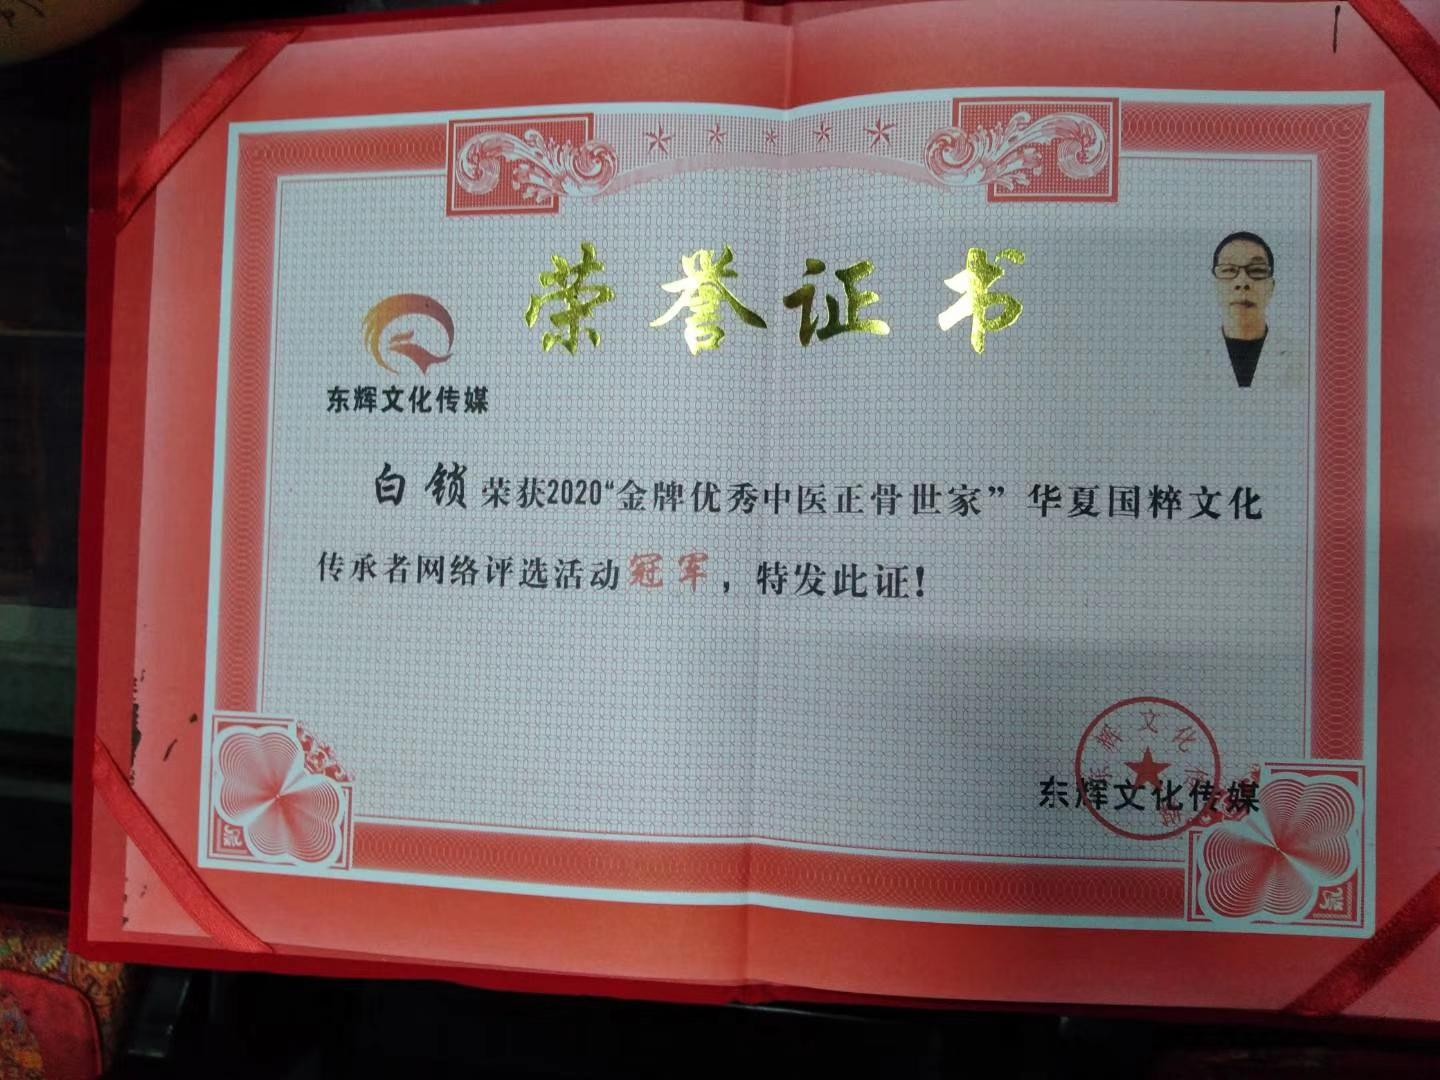 荣誉证书
东辉文化传媒
白锁荣获2020“金牌优秀中医正骨世家”华夏国粹文化
传承者网络评选活动冠军，特发此证！
东辉文化传媒
东辉文化传媒